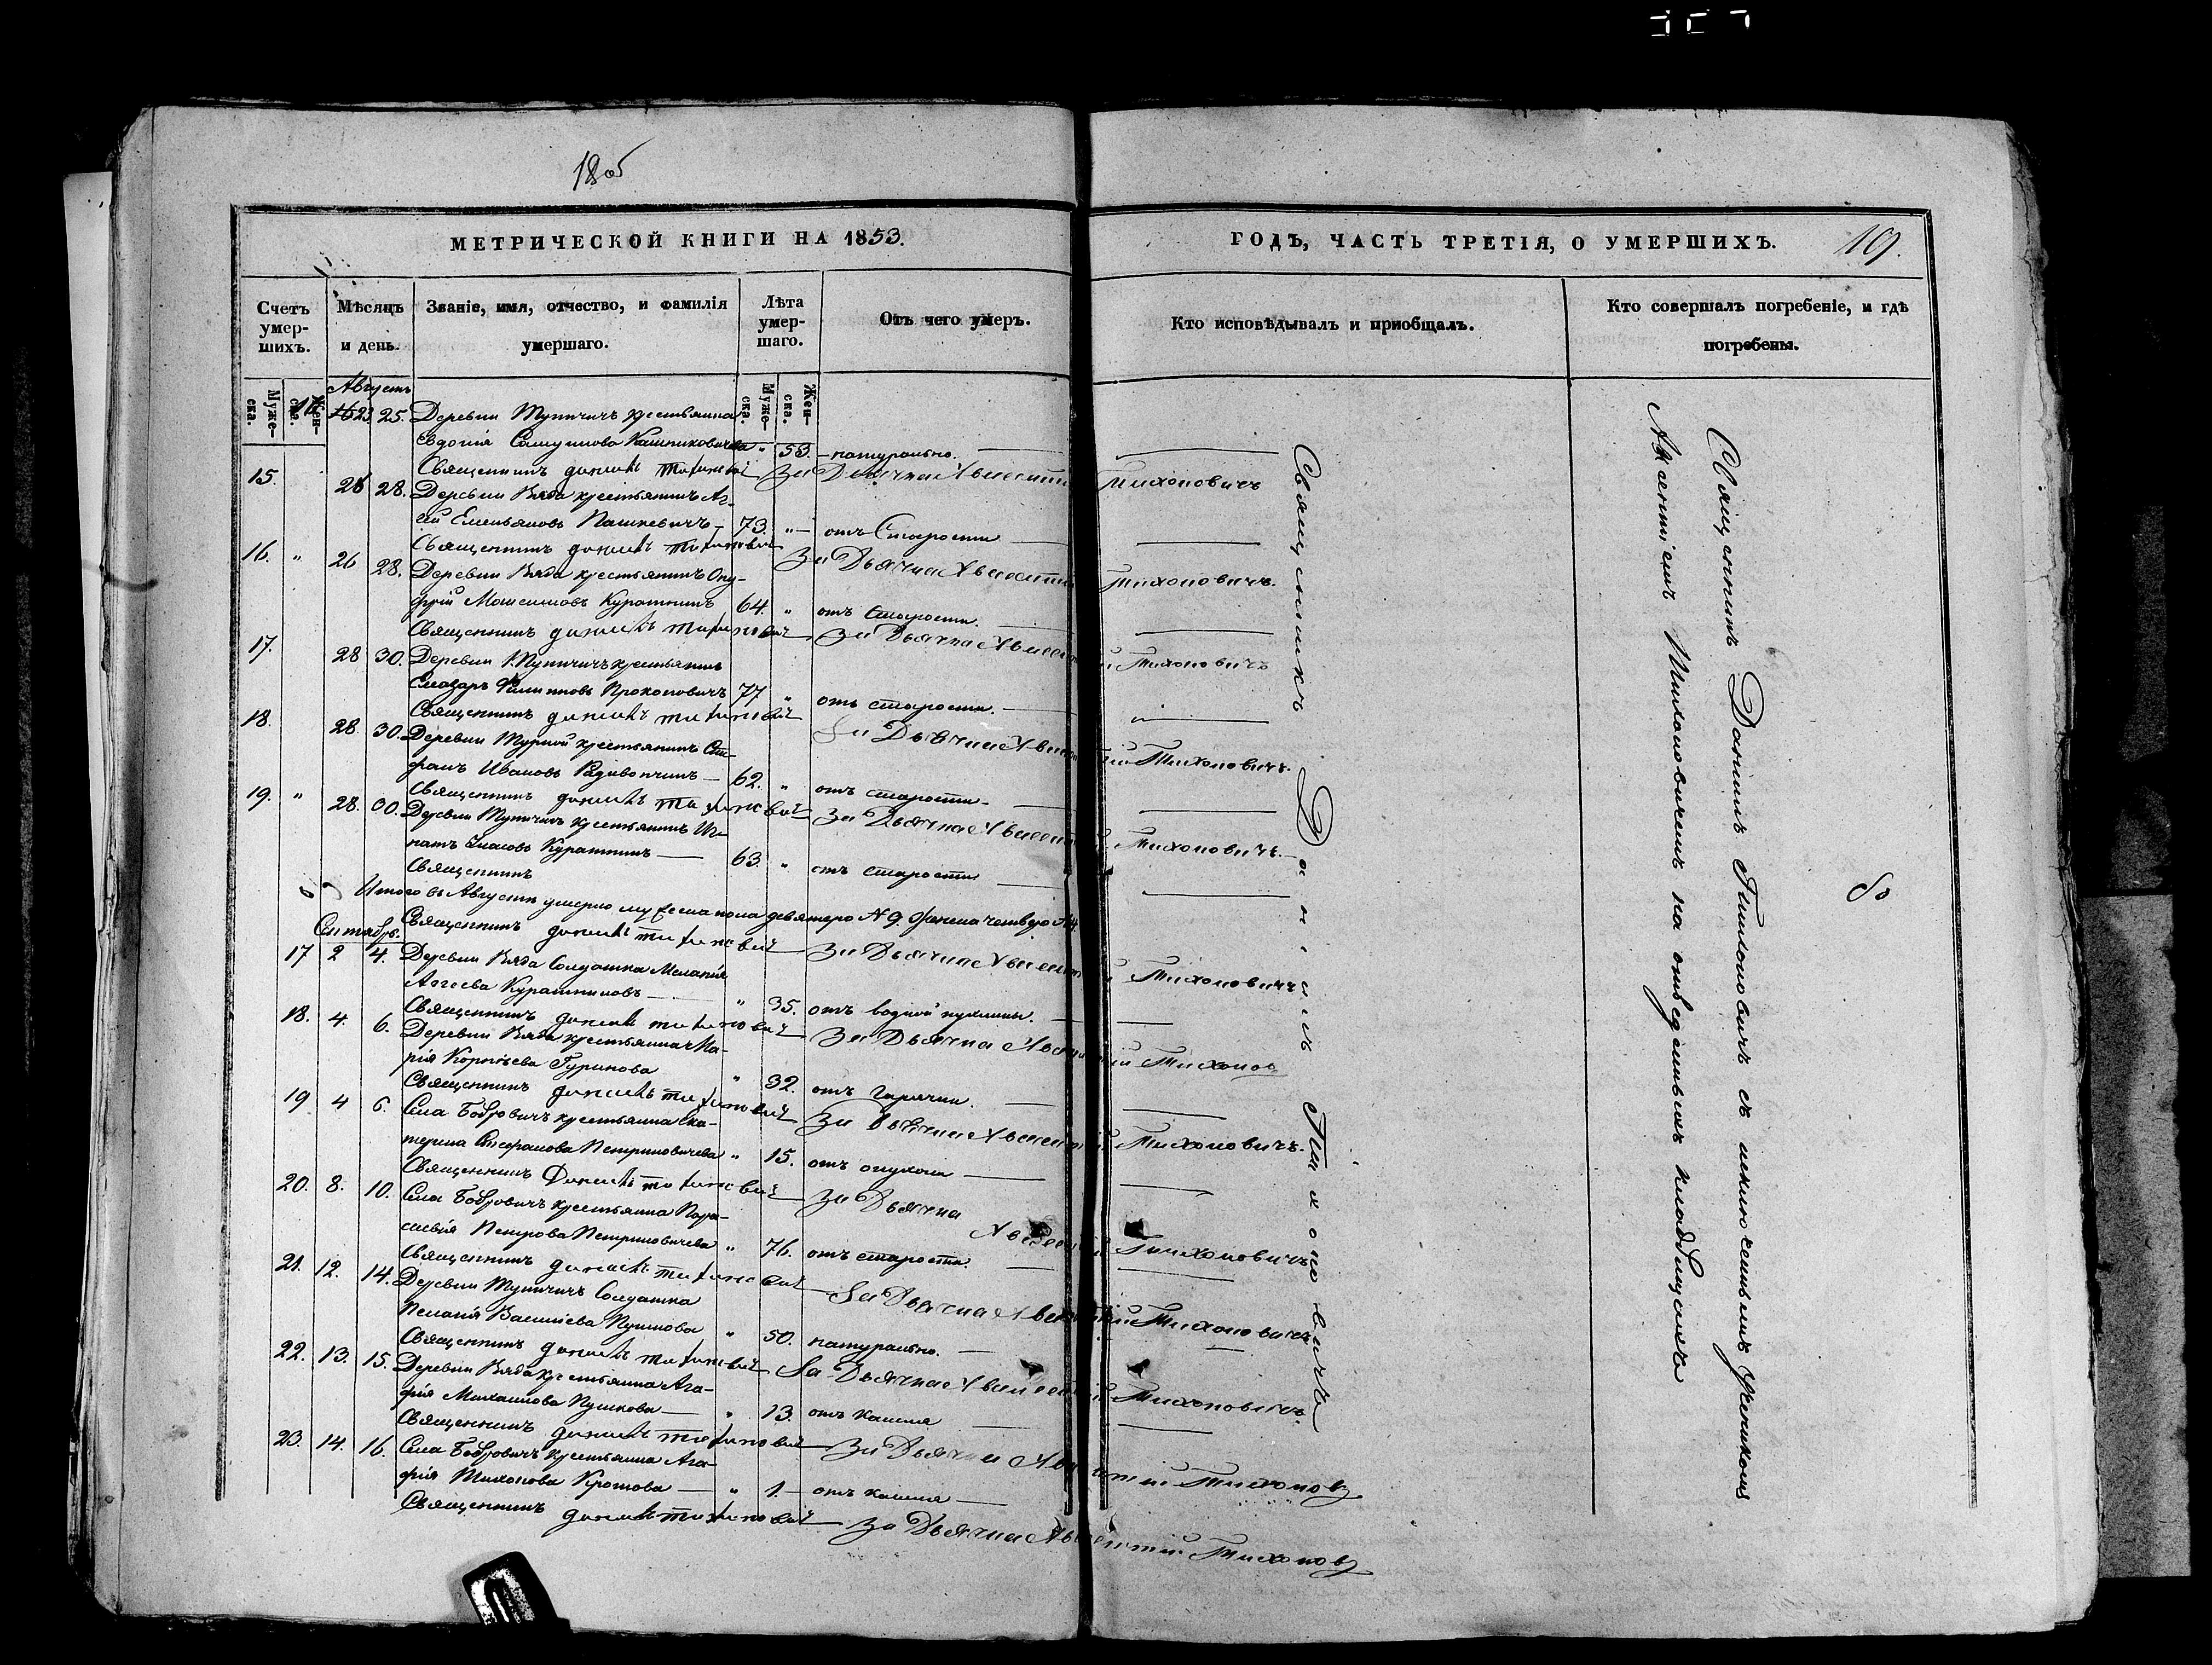 18об
МЕТРИЧЕСКОЙ КНИГИ НА 1853.
ГОДЪ, ЧАСТЬ ТРЕТІЯ, О УМЕРШИХЪ. 19.
Счетъ умер-шихъ.
Мѣсяцъ и день.
Званіе, имя, отчество, и фамилія умершаго.
Лѣта умер-шаго.
Отъ чего умеръ.
Кто исповѣдывалъ и приобщалъ.
Кто совершалъ погребеніе, и гдѣ погребены.
Муже-ска. Жен-ска.
Муже-ска. Жен-ска.
Августъ
16 23 25. Деревни Тупичичъ крестьянка
Евдокія Кашниковичева " 53. натурально.
Священникъ Даниилъ Тихоновичъ За Дьячка Авксентій Тихоновичъ
15. 26 28. Деревни Вяда крестьянинъ Аг-
ей Емельяновъ Пашкевичъ 73. " отъ Старости
Священникъ Даниилъ Тихоновичъ За Дьячка Авксентій Тихоновичъ.
16. " 26 28. Деревни Вяда крестьянинъ Ону-
фрій Куратникъ 64. " отъ Старости.
Священникъ Даниилъ Тихоновичъ За Дьячка Авксентій Тихоновичъ
17. 28 30. Деревни Тупичичъ крестьянинъ
Елазаръ Филиповъ Прокоповичъ 77 " отъ старости.
Священникъ Даниилъ Тихоновичъ За Дьячка Авксентій Тихоновичъ.
18. 28. 30. Деревни Турной крестьянинъ Сте-
фанъ Ивановъ 62. " отъ старости.
Священникъ Даниилъ Тихоновичъ За Дьячка Авксентій Тихоновичъ.
19. " 28. 30. Деревни Тупичичъ крестьянинъ Иг-
натъ Куратникъ 63. " отъ старости
Священникъ
Итого въ Августѣ умерло мужеска пола девятеро № 9. женска четверо № 4
Сентябрь. Священникъ Даниилъ Тихоновичъ За Дьячка Авксентій Тихоновичъ
17 2 4. Деревни Вяда Солдатка Меланія
Агеева " 35. отъ водной пухлины.
Священникъ Даниилъ Тихоновичъ За Дьячка Авксентій Тихонов
18. 4. 6. Деревни Вяда крестьянка Ма-
рія Корнѣева Гуринова " 32. отъ Горячки.
Священникъ Даниилъ Тихоновичъ За Дьячка Авксентій Тихоновичъ.
19 4 6. Села Бобровичъ крестьянка Ека-
терина Стефанова Петриковичева " 15. отъ опухоли
Священникъ Даниилъ Тихоновичъ За Дьячка
Авксентій Тихоновичъ
20. 8. 10. Села Бобровичъ крестьянка Пара-
скевія Петрова Петриковичева " 76. отъ старости.
Священникъ Даниилъ Тихоновичъ За Дьячка Авксентій Тихоновичъ
21. 12. 14. Деревни Тупичичъ Солдатка
Пелагія Василіева Пушкова " 50. натурально.
Священникъ Даниилъ Тихоновичъ За Дьячка Авксентій Тихоновичъ.
22. 13. 15. Деревни Вяда крестьянка Ага-
фія Михаилова Пушкова " 13. отъ кашля
Священникъ Даниилъ Тихоновичъ За Дьячка Авксентій Тихоновъ
23. 14. 16. Села Бобровичъ крестьянка Ага-
фія Тихонова Кротова " 1. отъ кашля
Священникъ Даниилъ Тихоновичъ За Дьячка Авксентій Тихоновъ
Священникъ Даниилъ Тихоновичъ
Священникъ Даниилъ Тихоновичъ съ исключеніемъ
Авксентіемъ Тихоновичемъ на отведенныхъ кладбищахъ